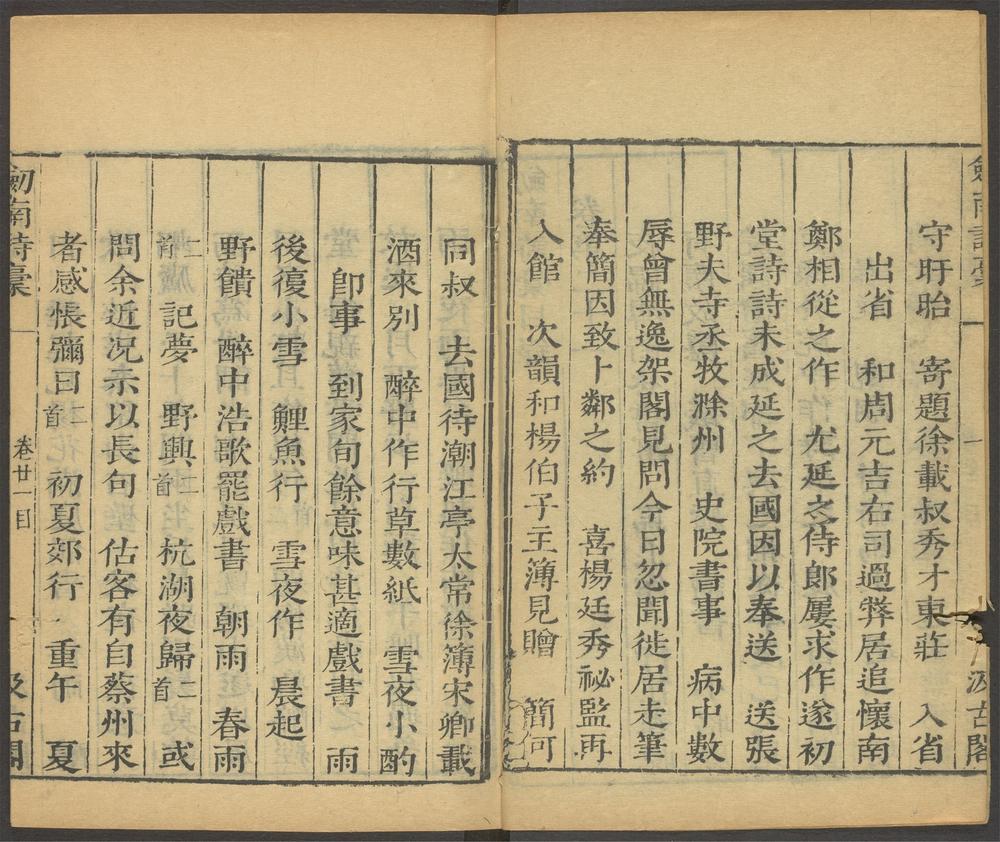 劍南詩稾
一
汲古閣
守盱眙　寄題徐載叔秀才東莊　入省
出省　和周元吉右司過弊居追懷南
鄭相從之作　尤延之侍郎屢求作遂初
堂詩詩未成延之去國因以奉送　送張
野夫寺丞牧滁州　史院書事　病中數
辱曾無逸架閣見問今日忽聞徙居走筆
奉簡因致卜鄰之約　喜楊廷秀祕監再
入館　次韻和楊伯子主簿見贈　簡何
同叔　去國待潮江亭太常徐簿宋卿載
酒來別　醉中作行草數紙　雪夜小酌
卽事　到家旬餘意味甚適戲書　雨
後復小雪　鯉魚行　雪夜作　晨起
野饋　醉中浩歌罷戲書　朝雨　春雨
二首　記夢　野興二首　杭湖夜歸二首　或
問余近况示以長句　估客有自蔡州來
者感悵彌日二首　初夏郊行　重午　夏
劍南詩稾
卷廿一目
汲古閣